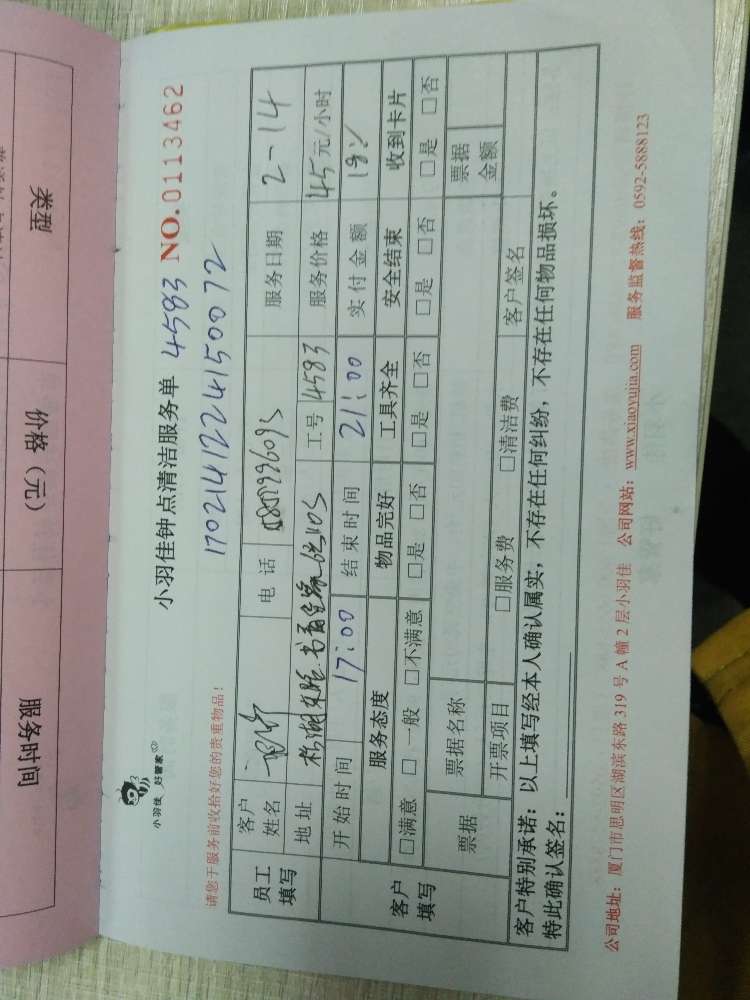 小羽佳 好管家
小羽佳钟点清洁服务单 4583 NO.0113462
170214122415007 2
请您于服务前收拾好您的贵重物品！
员工填写 客户姓名 电话 服务日期 2-14
地址 工号 4583 服务价格 45元/小时
开始时间 17:00 结束时间 21:00 实付金额
客户填写 服务态度 物品完好 工具齐全 安全结束 收到卡片
□满意 □一般 □不满意 □是 □否 □是 □否 □是 □否 □是 □否
票据 票据名称 票据金额
开票项目 □服务费 □清洁费 客户签名
客户特别承诺：以上填写经本人确认属实，不存在任何纠纷，不存在任何物品损坏。
特此确认签名：
公司地址：厦门市思明区湖滨东路319号A幢2层小羽佳 公司网站：www.xiaoyujia.com 服务监督热线：0592-5888123
类型
价格（元）
服务时间